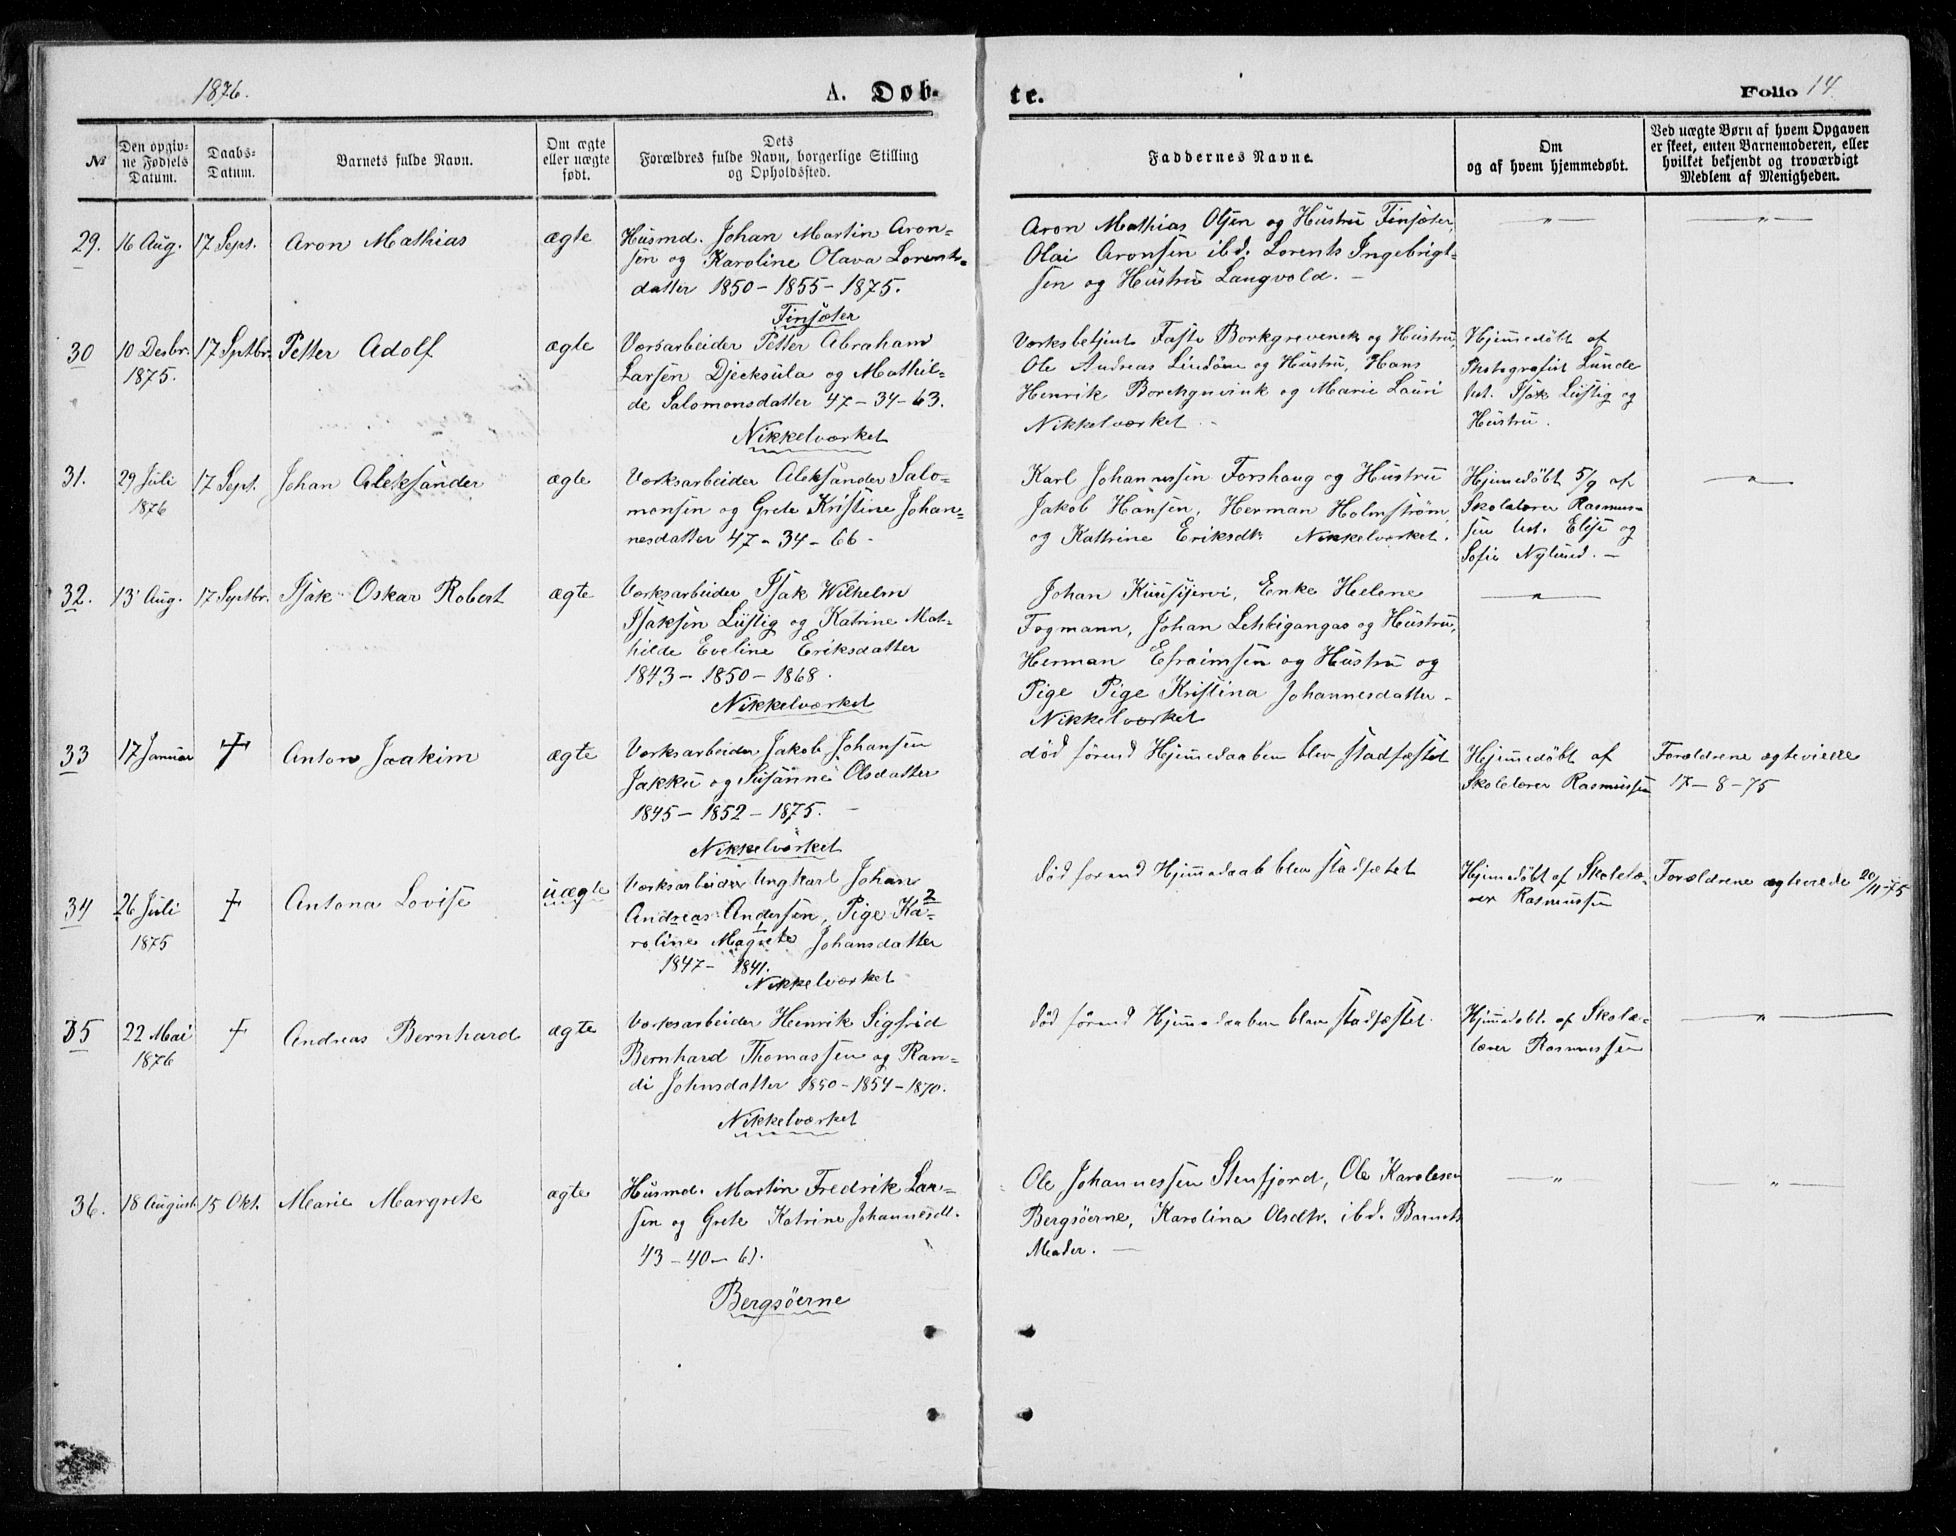 1876.
A. Døb-
te.
Folio 14.
№
Den opgiv-
ne Fødsels
Datum.
Daabs-
Datum.
Barnets fulde Navn.
Om ægte
eller uægte
født.
Dets
Forældres fulde Navn, borgerlige Stilling
og Opholdssted.
Faddernes Navne.
Om
og af hvem hjemmedøbt.
Ved uægte Børn af hvem Opgaven
er skeet, enten Barnemoderen, eller
hvilket bekjendt og troværdigt
Medlem af Menigheden.
29.
16 Aug.
17 Sept.
Aron Mathias
ægte
Husmd. Johan Martin Aron-
sen og Karoline Olava Lorents-
datter 1850 - 1855 - 1875.
Finsæter
Aron Mathias Olsen og Hustru Finsæter,
Olai Aronsen ibd. Lorents Ingebrigt-
sen og Hustru Langvold. -
— " —
— " —
30
10 Desbr.
1875.
17 Sptbr.
Petter Adolf
ægte
Værsarbeider Petter Abraham
Larsen Djecksula og Mathil-
de Salomonsdatter 47 - 34 - 63.
Nikkelværket
Værksbetjent Borkgrevenck og Hustru,
Ole Andreas og Hustru, Hans
Henrik og Marie Lauri
Nikkelværket -
Hjemmedøbt af
Photografist Lunde
Isak Lustig og
Hustru.
31.
29 Juli
1876
17 Sept.
Johan Aleksander
ægte
Værksarbeider Aleksander Salo-
monsen og Grete Kristine Johan-
nesdatter 47 - 34 - 66 -
Karl Johannssen Forshaug og Hustru
Jakob Hansen, Herman Holmstrøm,
og Kattrine Eriksdt. Nikkelværket.
Hjemmedøbt 5/9 af
Skolelærer Rasmus-
sen Elise og
Sofie Nylund. -
— " —
32.
13 Aug.
17 Septbr.
Isak Oskar Robert
ægte
Værksarbeider Isak Wilhelm
Isaksen Lustig og Katrine Mat-
hilde Eveline Eriksdatter
1843 - 1850 - 1868.
Nikkelværket
Johan Kuusijervi, Enke Helene
Fogmann, Johan Lehkigangas og Hustru,
Herman Efraimsen og Hustru og
Pige Pige Kristina Johannesdatter -
Nikkelværket
— " —
33
17 Januar
†
Anton Joakim
ægte
Værksarbeider Jakob Johansen
Jakku og Susanne Olsdatter
1845 - 1852 - 1875. -
Nikkelværket
død førend Hjemmedaaben blev stadfæstet
Hjemmedøbt af
Skolelærer Rasmussen
Forældrene ægteviede
17 - 8 - 75
34
26 Juli
1875
†
Antona Lovise
uægte
Værksarbeider Ungkarl Johan
Andreas Andersen, 2 Pige Ka-
roline Magrete 1 Johansdatter
1847 - 1841.
Nikkelværket
død førend Hjemmedaab blev stadfæstet
Hjemmedøbt af Skolelæ-
rer Rasmussen
Forældrene ægteviede 20/11-75
35
22 Mai
1876
†
Andreas Bernhard
ægte
Værksarbeider Henrik Sigfrid
Bernhard Thomassen og Ran-
di Johnsdatter 1850 - 1854 - 1870.
Nikkelværket
død førend Hjemmedaaben blev stadfæstet.
Hjemmedøbt af Skole-
lærer Rasmussen
— " —
36.
18 August
15 Okt.
Marie Margrete
ægte
Husmd. Martin Fredrik Lar-
sen og Grete Katrine Johannesdt.
43 - 40 - 61.
Bergsøerne
Ole Johannessen Stensfjord, Ole Karolesen
Bergsøerne, Karolina Olsdtr. ibd. Barnets
Moder. —
— " —
— " —